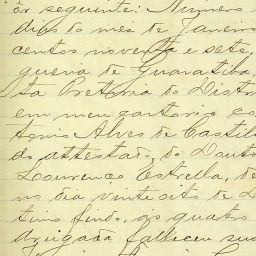 or seguinte: Numero
dias do mes de Janeiro
centos noventa e sete,
guezia de Guaratiba,
ta Pretoria do Distri
em meu cartorio co
tonio Alves de Castil
do attestado, do Douto
Lourenço Estrella, de
no dia vinte oito de D
timo findo, as quatro
drugada falleceu sua